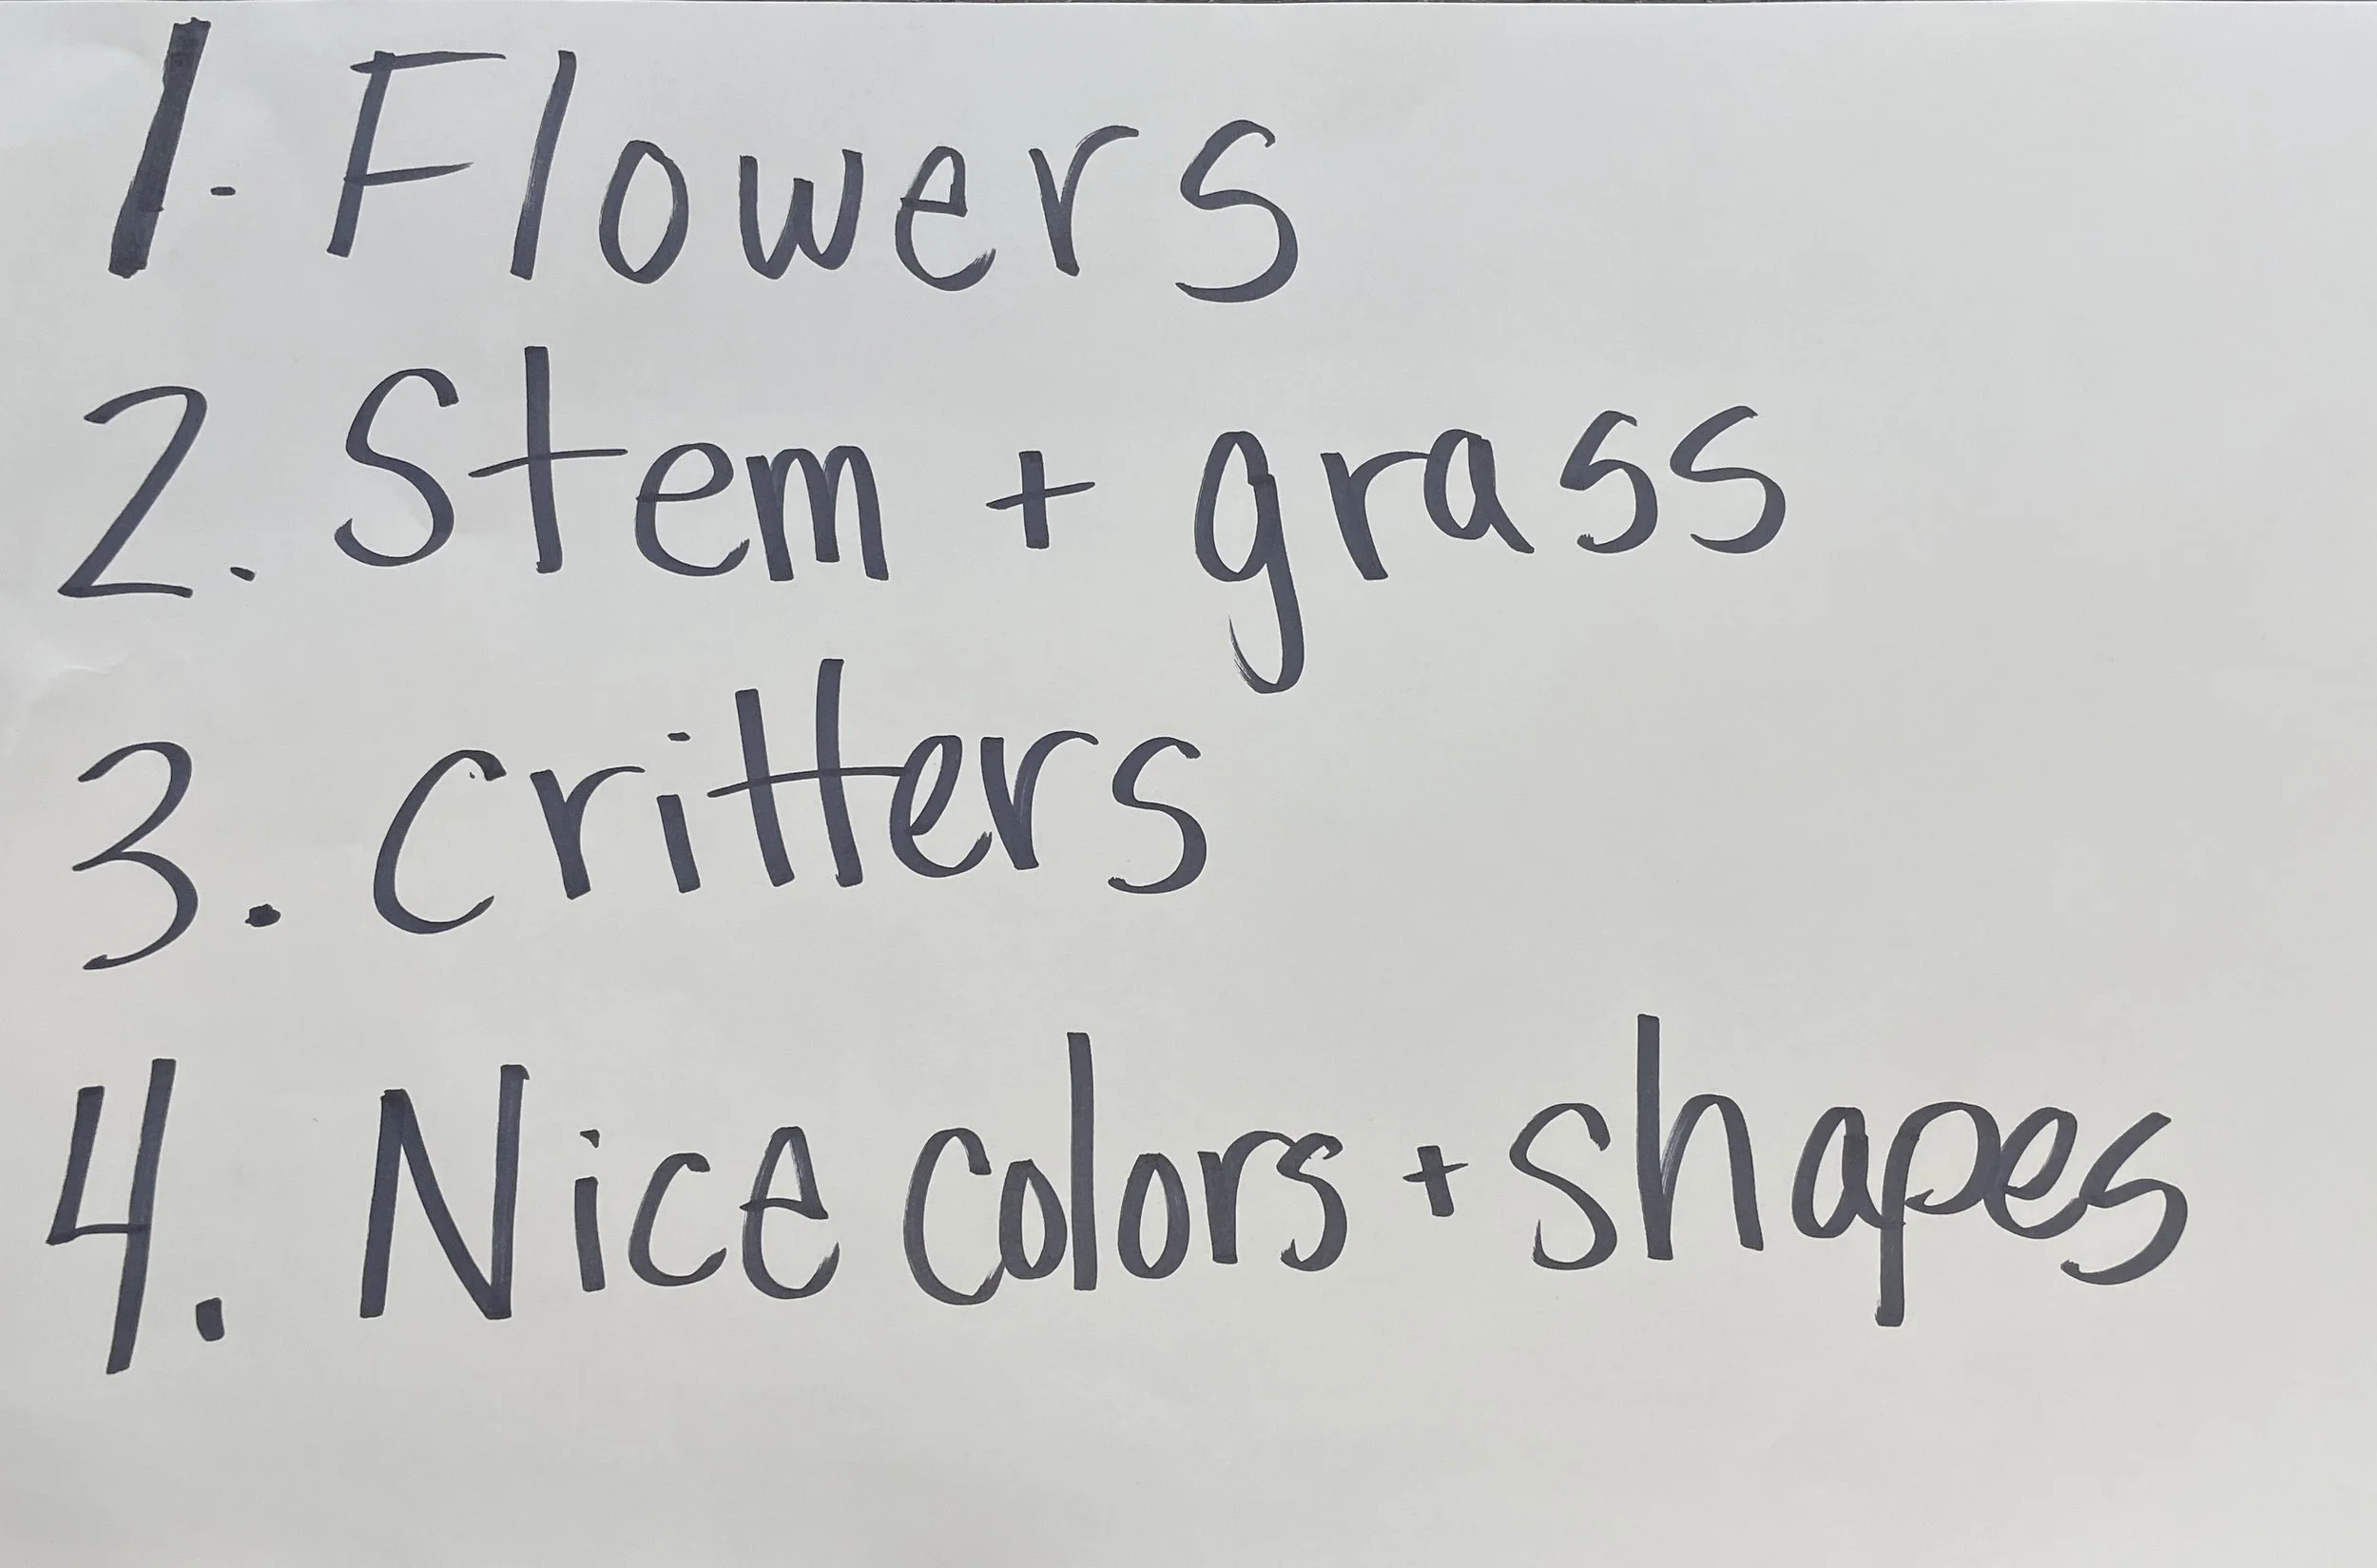 1. Flowers
2. Stem + grass
3. Critters
4. Nice colors + shapes